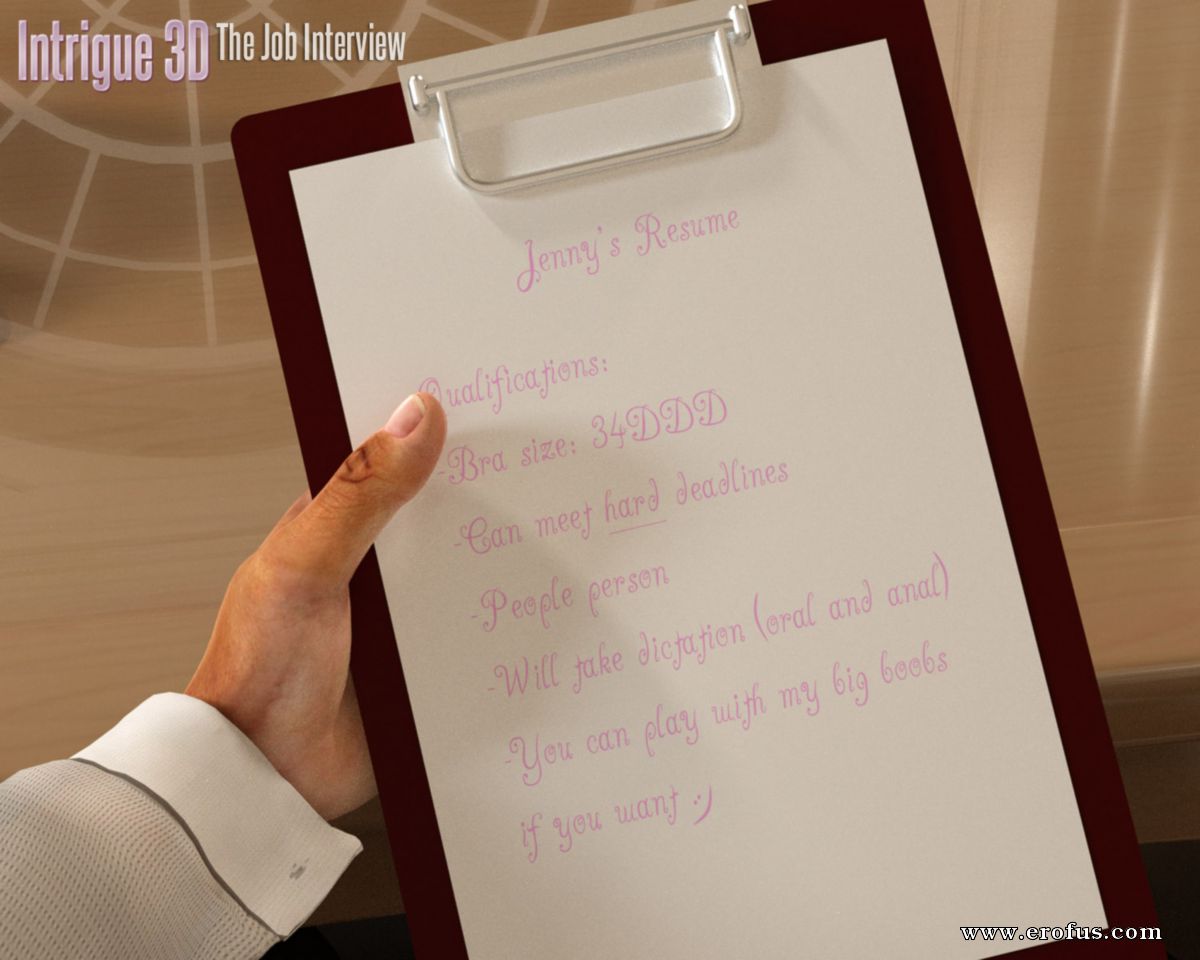 Intrigue 3D The Job Interview
Jenny's Resume
Qualifications:
-Bra size: 34DDD
-Can meet hard deadlines
-People person
-Will take dictation (oral and anal)
-You can play with my big boobs
if you want :)
www.erofus.com